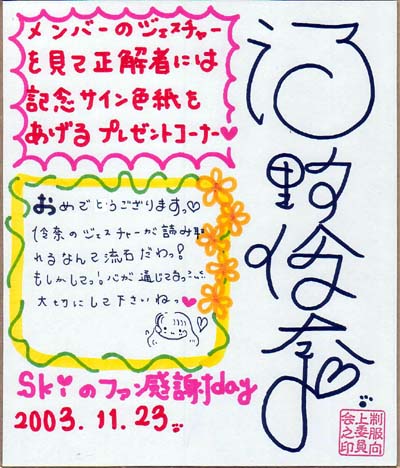 メンバーのジェスチャー
を見て正解者には
記念サイン色紙を
あげるプレゼントコーナー♥
おめでとうございますっ♡
伶奈のジェスチャーが読み取
れるなんて流石だわっ!
もしかしてっ!心が通じてるっ
大切にして下さいねっ♥
Skiのファン感謝day
2003.11.23
河野伶奈♡
制服向
上委員
会之印